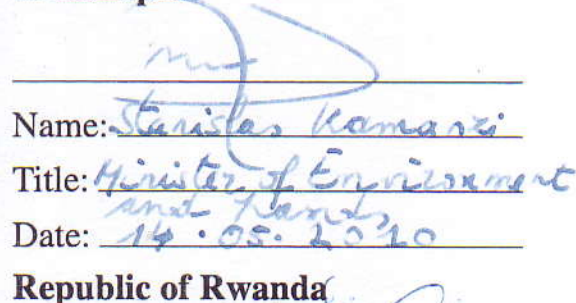 Name: Stanislas Kamanzi
Title: Minister of Environment
and Lands
Date: 14.05.2010
Republic of Rwanda